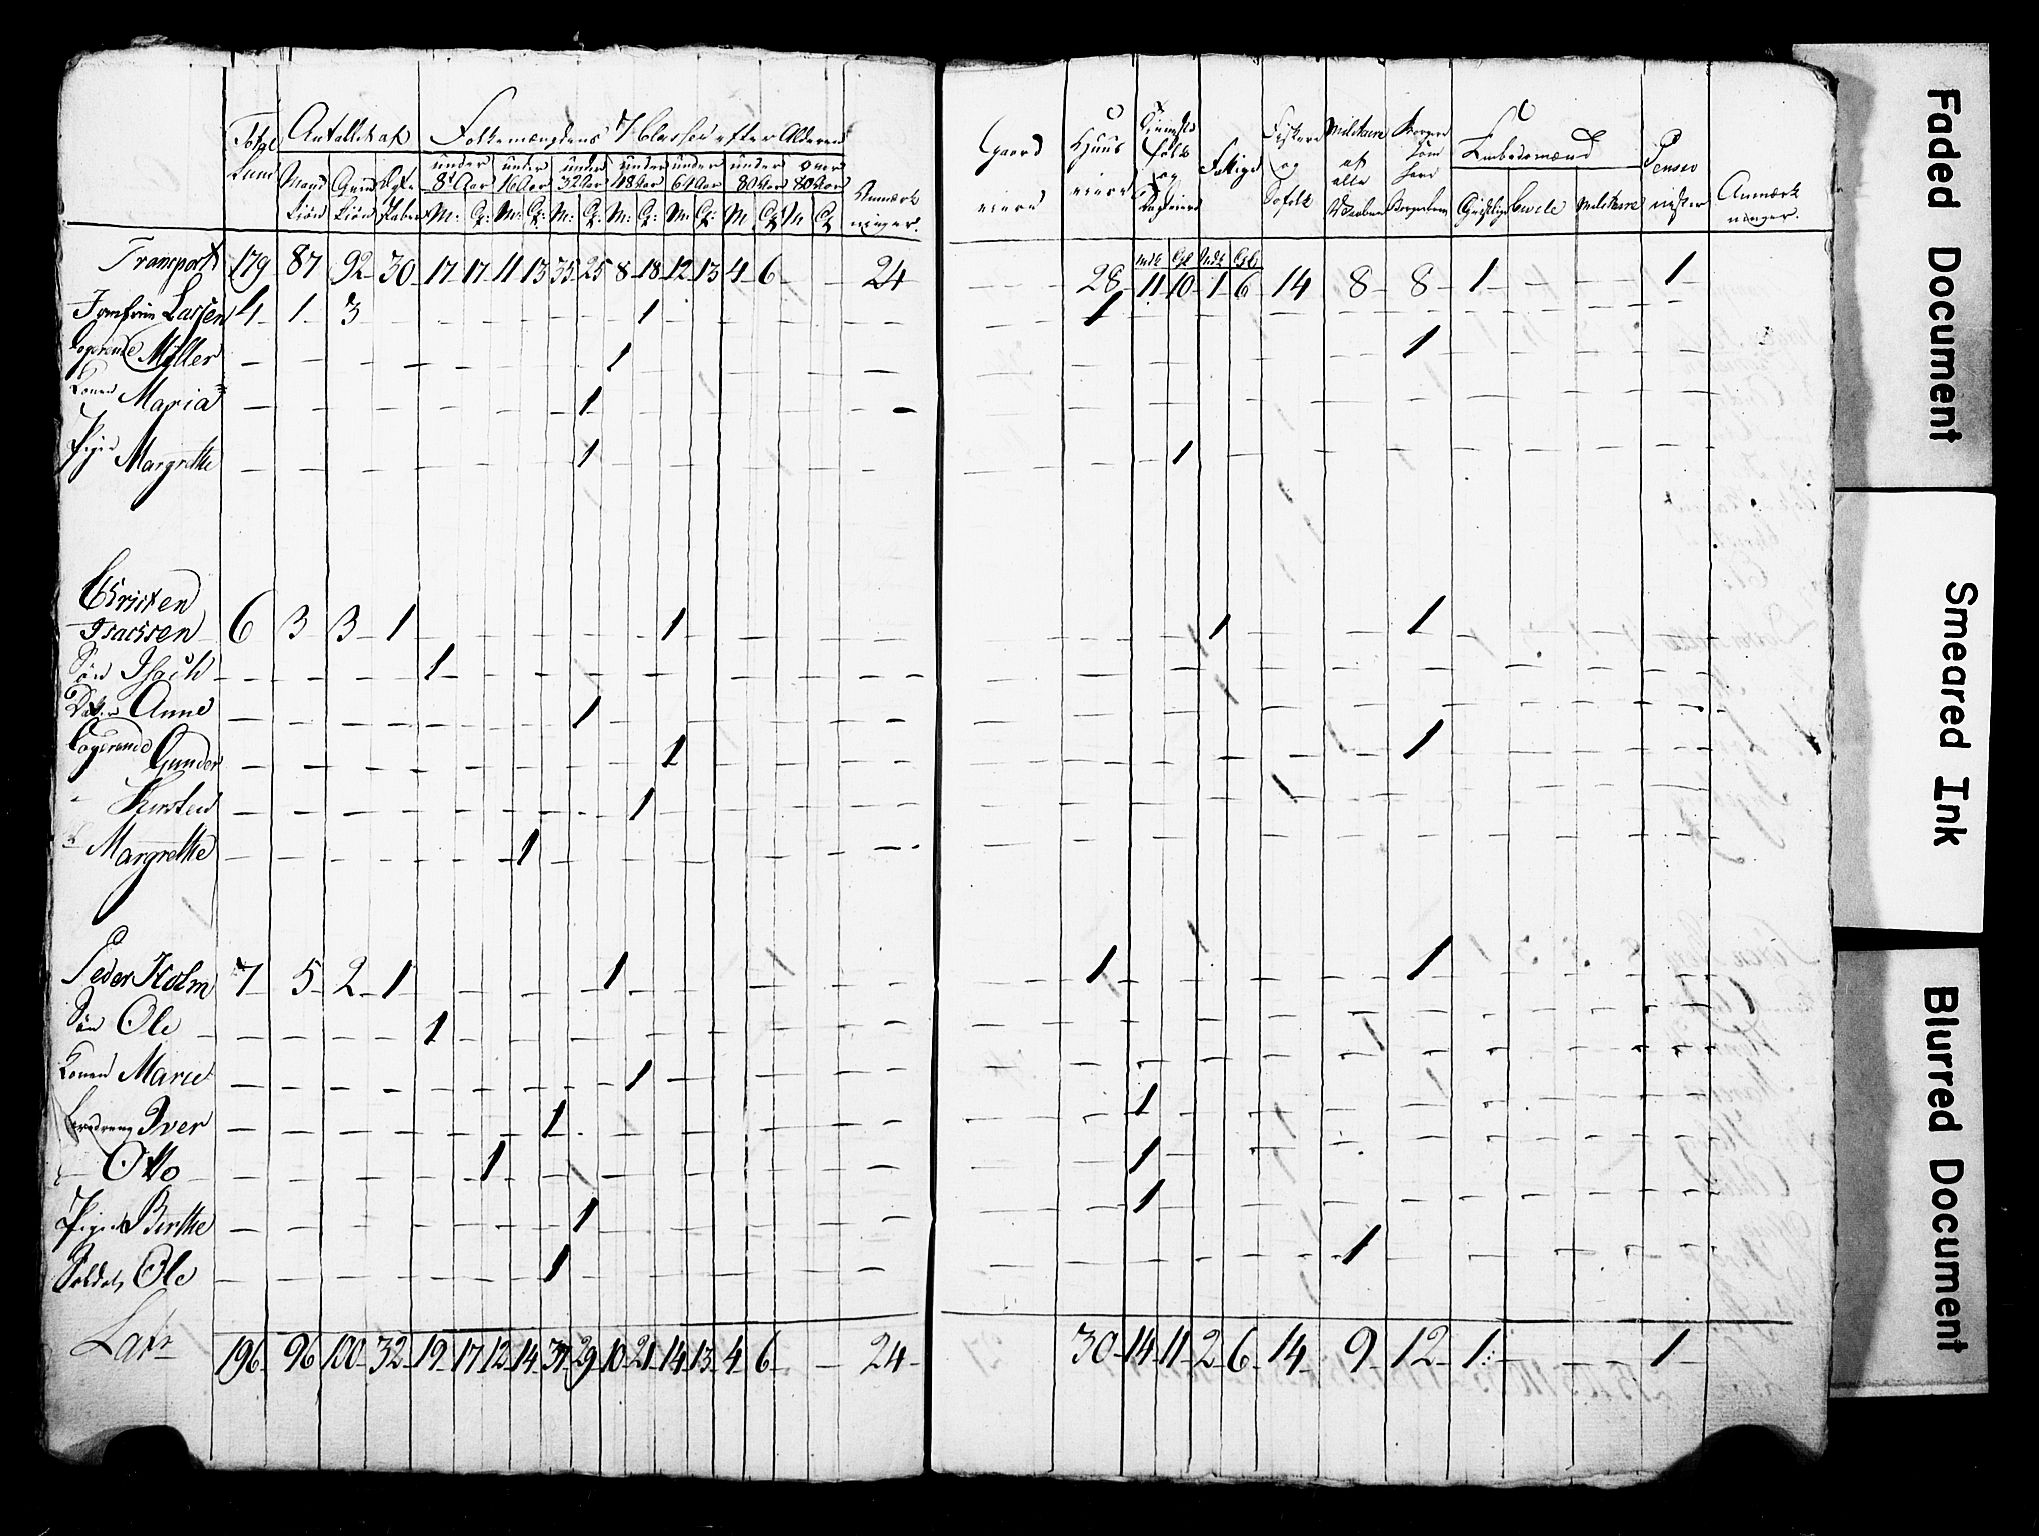 Antallet af Folkemængdens 7 Classer efter Alderen
under 8te Aar under 16 Aar under 32 Aar under 48 Aar under 64 Aar under 80 Aar over 80 Aar
M: Q: M: Q: M: Q: M: Q: M: Q: M Q M Q
Transport 179 87 92 30 17 17 11 13 35 25 8 18 12 13 4 6 24
Lassen 4 1 3 1
Logerende Møller 1
Konen Maria 1
Pige Margrethe 1
Christen
Isacssen 6 3 3 1 1
Søn Isach 1
Anne 1
Logerende Gunder 1
Kirsten 1
Margrethe 1
Peder Holm 7 5 2 1 1
Søn Ole 1
Konen Marie 1
Iver 1
Otto 1
Pige Birthe 1
Soldat Ole 1
Lats 196 96 100 32 19 17 12 14 37 29 10 21 14 13 4 6 24
Gaard Huus Fattige Fiskere og Militaire af alle Borgere som Embedsmænd
Geistlige Civile Militaire Anmærkninger.
28 11 10 1 6 14 8 8 1 1
1
1
1
1 1
1
1 1
1
1
1
1
30 14 11 2 6 14 9 12 1 1
Faded Document
Smeared Ink
Blurred Document